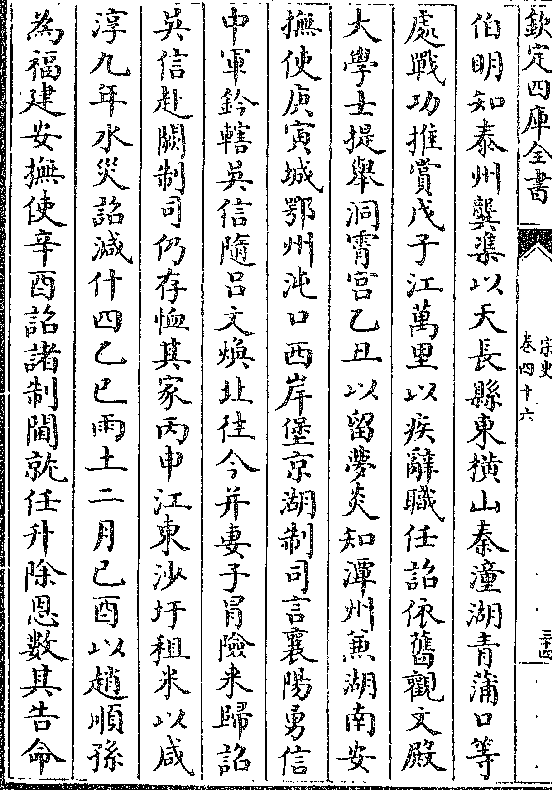 欽定四庫全書
宋史
卷四十六
伯明知泰州龔潗以天長縣東橫山秦潼湖青蒲口等
處戰功推賞戊子江萬里以疾辭職任詔依舊觀文殿
大學士提舉洞霄宮乙丑以留夢炎知潭州兼湖南安
撫使庚寅城鄂州沌口西岸堡京湖制司言襄陽勇信
中軍鈐轄吳信隨呂文煥北往今并妻子冒險來歸詔
吳信赴闕制司仍存恤其家丙申江東沙圩租米以咸
淳九年水災詔減什四乙巳雨土二月己酉以趙順孫
為福建安撫使辛酉詔諸制閫就任升除恩數其告命